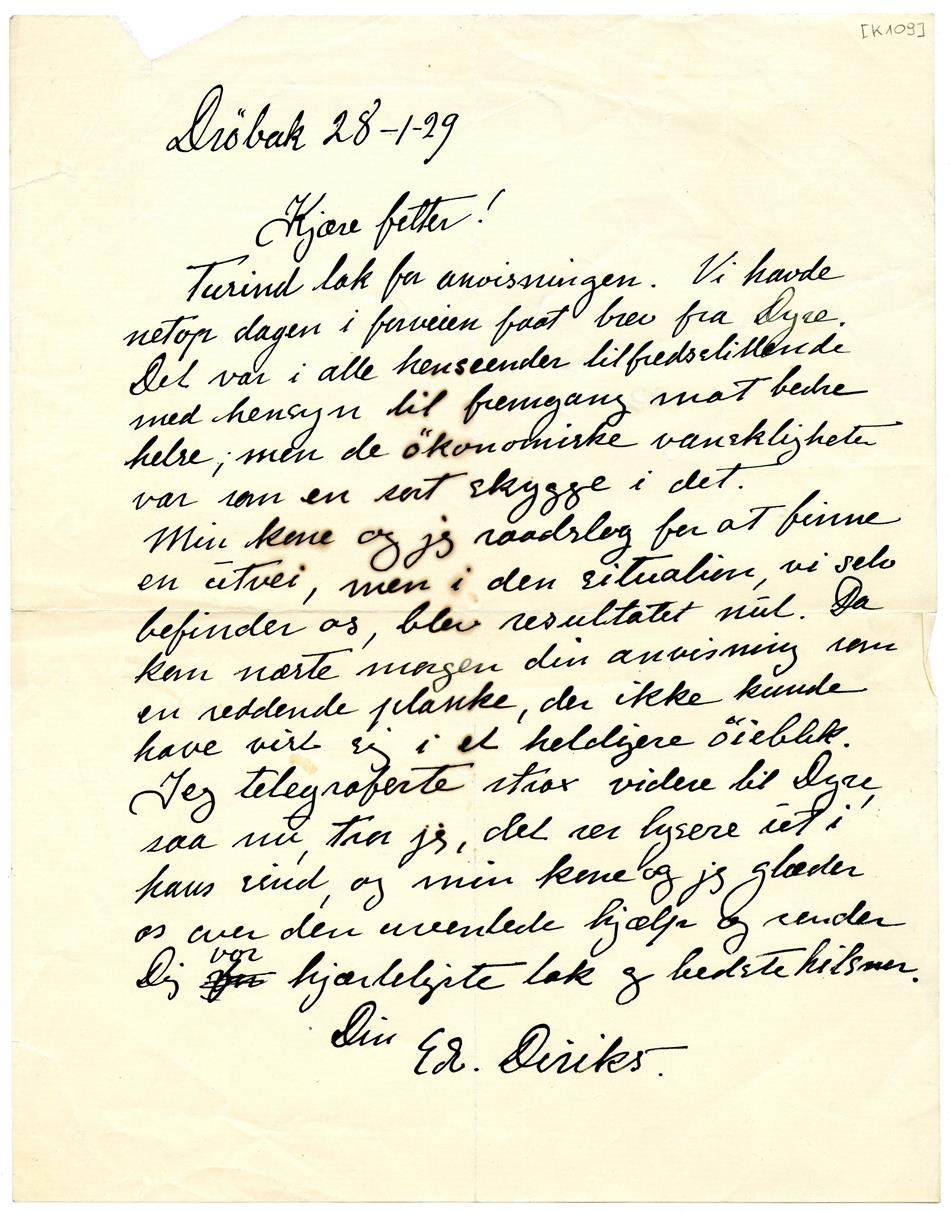 [K109]
Dröbak 28-1-29
Kjære fetter!
Tusind tak for anvisningen. Vi havde
netop dagen i forveien faat brev fra Dyre.
Det var i alle henseender tilfredsstillende
med hensyn til fremgang mot bedre
helse, men de ökonomiske vanskligheter
var som en sort skygge i det.
Min kone og jeg raadslog for at finne
en utvei, men i den situation, vi selv
befinder os, blev resultatet nul. Da
kom næste morgen din anvisning som
en reddende planke, der ikke kunde
have vist sig i et heldigere öieblik.
Jeg telegraferte strax videre til Dyre,
saa nu, tror jeg, det ser lysere ut i
hans sind, og min kone og jeg glæder
os over den uventede hjælp og sender
Dig vor hjærteligste tak og bedste hilsner.
Din
Ed. Diriks.